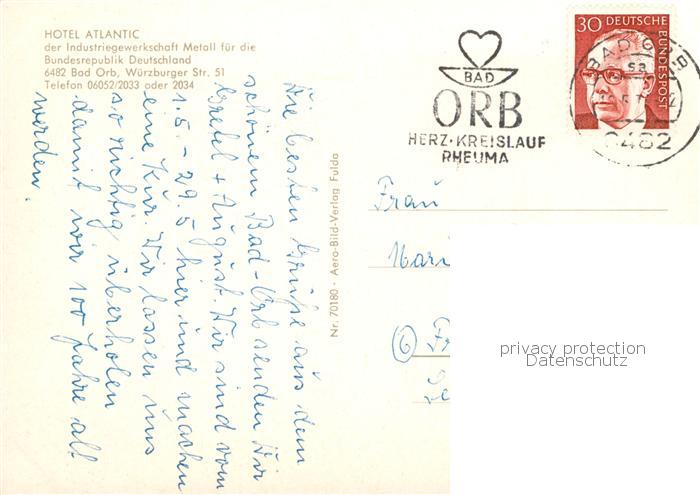 HOTEL ATLANTIC
der Industriegewerkschaft Metall für die
Bundesrepublik Deutschland
6482 Bad Orb, Würzburger Str. 51
Telefon 06052/2033 oder 2034
Die besten Grüße aus dem
schönem Bad-Orb senden Dir
Gretel + August. Wir sind vom
1.5. – 29.5 hier und machen
eine Kur. Wir lassen uns
so richtig überholen
damit wir 100 Jahre alt
werden.
Nr. 70180 · Aero-Bild-Verlag Fulda
BAD
ORB
HERZ·KREISLAUF
RHEUMA
30 DEUTSCHE
BUNDESPOST
BAD
6482
Frau
privacy protection
Datenschutz